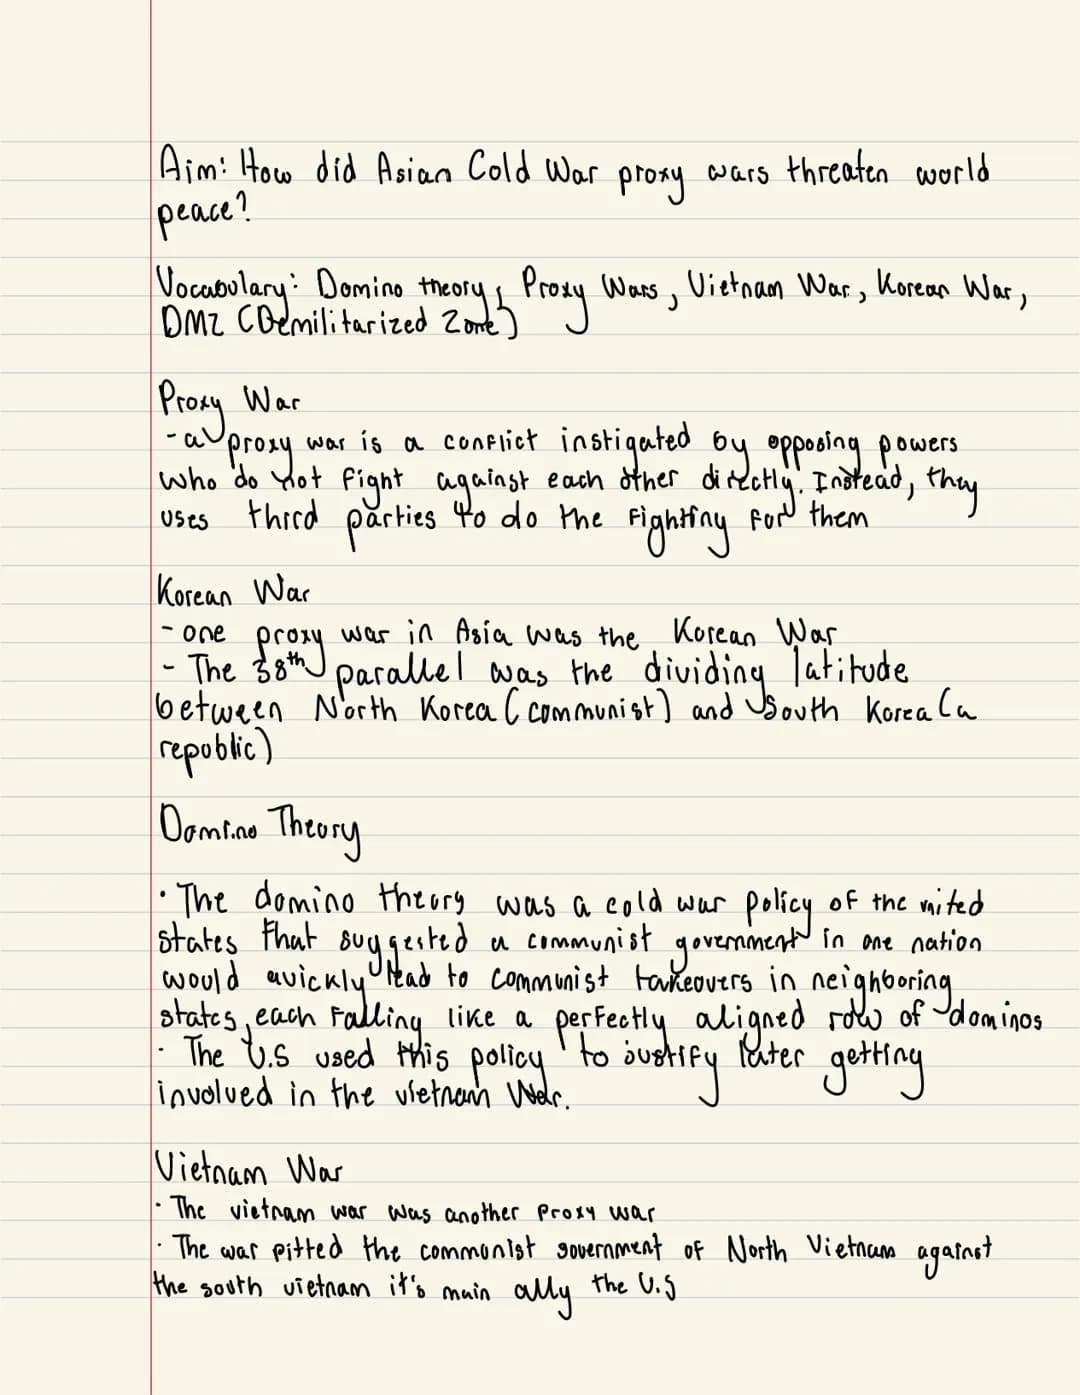 Aim: How did Asian Cold War proxy wars threaten world
peace?
Vocabulary: Domino theory, Proxy Wars, Vietnam War, Korean War,
DMZ (Demilitarized Zone)
Proxy War
- a proxy war is a conflict instigated by opposing powers
who do not fight against each other directly. Instead, they
uses third parties to do the fighting for them
Korean War
- one proxy war in Asia was the Korean War
- The 38th parallel was the dividing latitude
between North Korea (communist) and South Korea (a
republic)
Domino Theory
· The domino theory was a cold war policy of the united
states that suggested a communist government in one nation
would quickly lead to communist takeovers in neighboring
states, each falling like a perfectly aligned row of dominos
· The U.S used this policy to justify later getting
involved in the vietnam War.
Vietnam War
· The vietnam war was another proxy war
· The war pitted the communist government of North Vietnam against
the south vietnam it's main ally the U.S